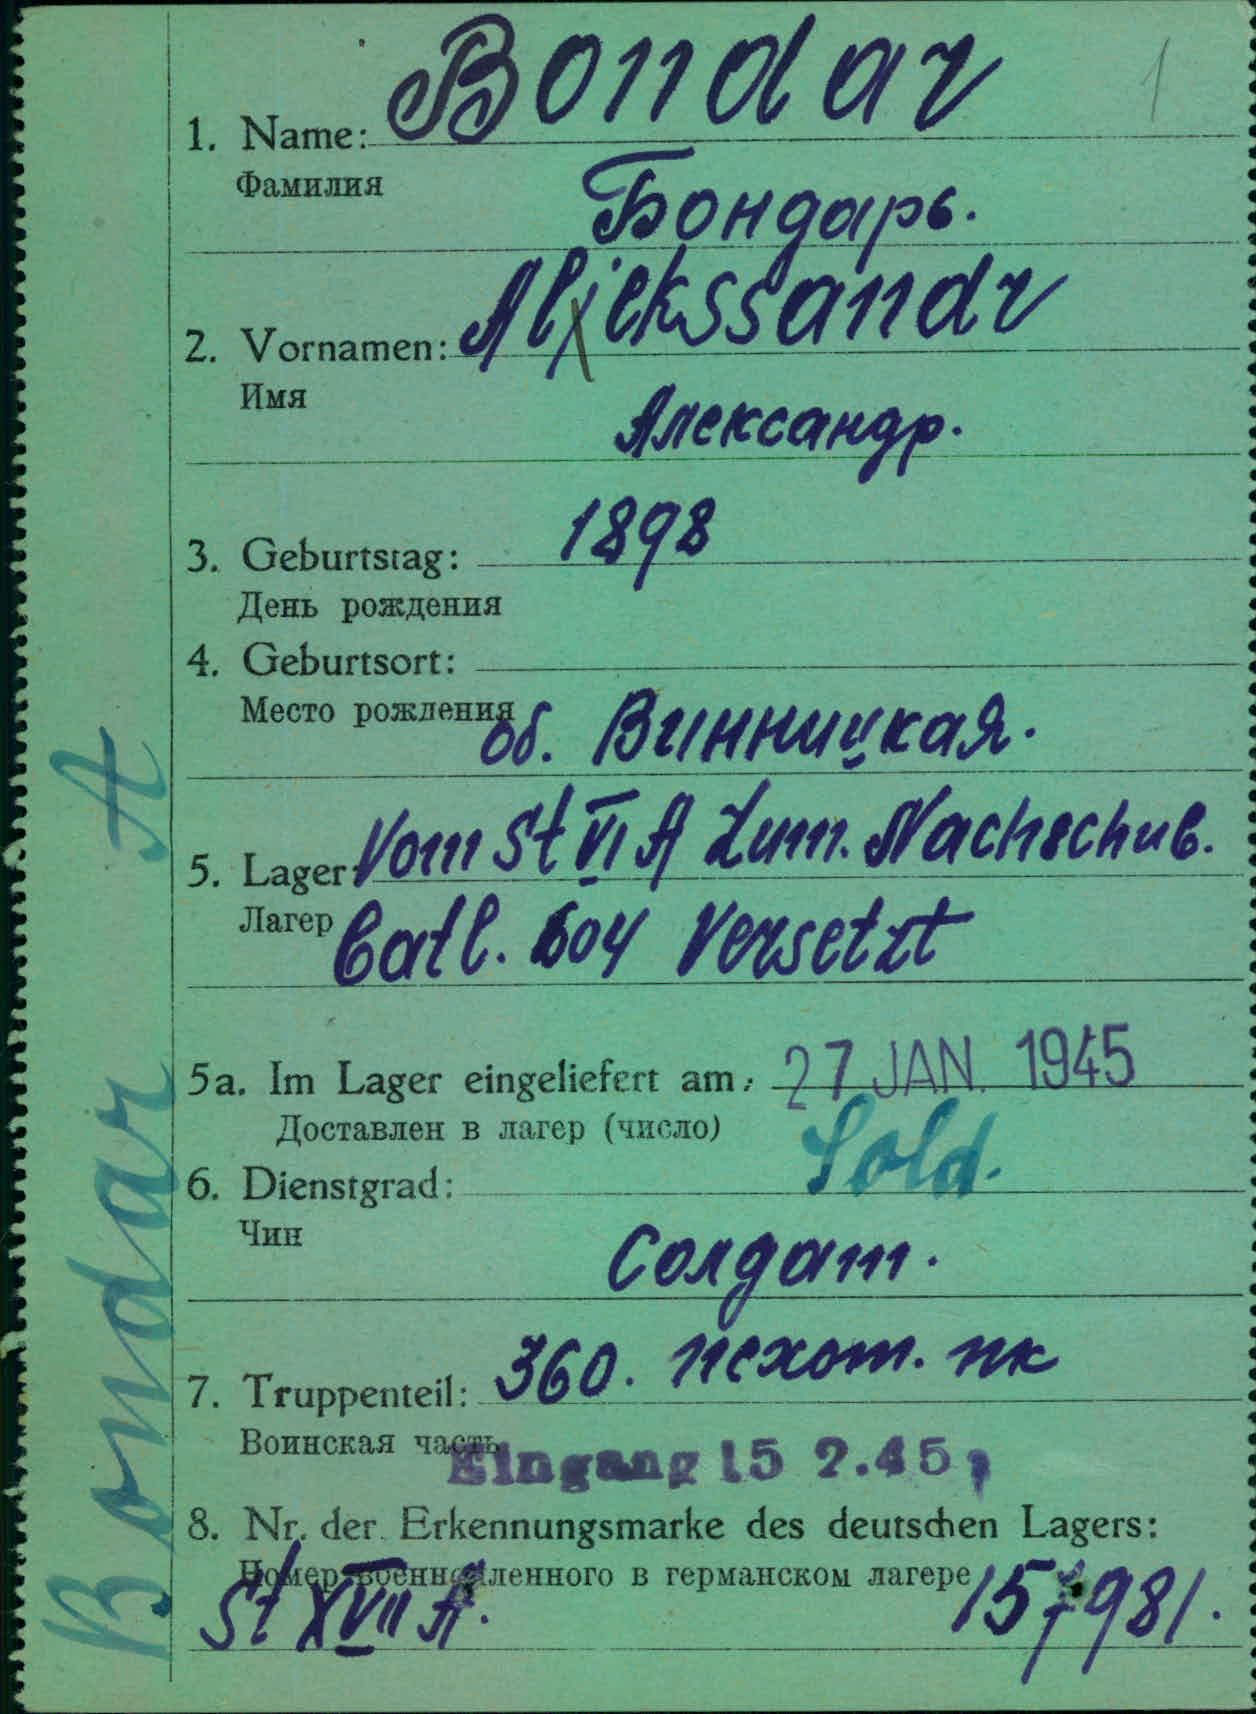 1
1. Name: Bondar
Фамилия
Бондарь.
2. Vornamen: Aljekssandr
Имя
Александр.
3. Geburtstag: 1898
День рождения
4. Geburtsort:
Место рождения
об. Винницкая.
5. Lager: Vom St VI A Zum. Nachschub.
Лагер Batl. 604 Versetzt
5a. Im Lager eingeliefert am: 27 JAN. 1945
Доставлен в лагер (число)
6. Dienstgrad: Sold.
Чин
Солдат.
7. Truppenteil: 360. пехот. пк
Воинская часть
Eingang 15 2.45
8. Nr. der Erkennungsmarke des deutschen Lagers:
Номер военнопленного в германском лагере
St XVII A. 157981.
Bondar A